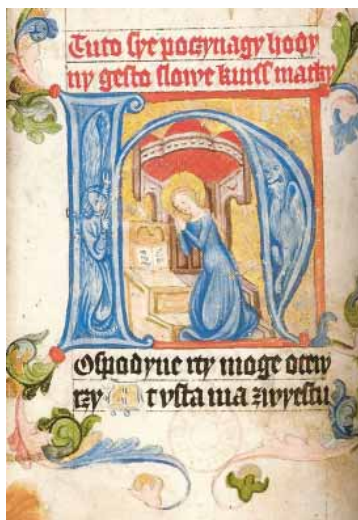 Tuto sye poczynagy hody
ny gesto slowe kurss matky
H
Ospodyne rty moge otew
rzy A t vsta ma zwyestu